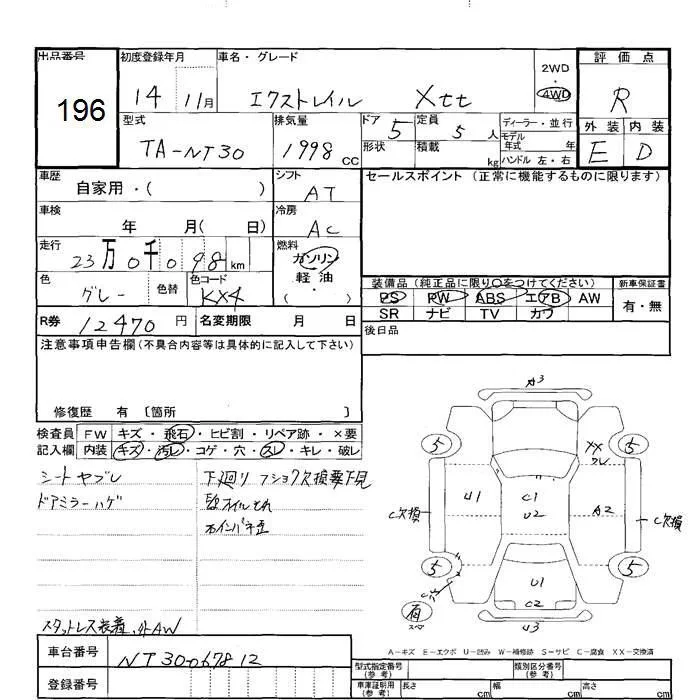 出品番号 196
初度登録年月 14 11月
車名・グレード エクストレイル Xtt
2WD・4WD
評価点 R
外装 E 内装 D
型式 TA-NT30
排気量 1998 CC
ドア 5 定員 5 人
形状 積載 kg
ディーラー・並行
モデル年式 年
ハンドル 左・右
車歴 自家用・( )
シフト AT
セールスポイント (正常に機能するものに限ります)
車検 年 月( 日)
冷房 AC
走行 23万0千098 km
燃料 ガソリン 軽油 ( )
色 グレー 色替 色コード KX4
装備品 (純正品に限り○をつけてください) 新車保証書
PS PW ABS エアB AW 有・無
SR ナビ TV カワ
R券 12470 円 名変期限 月 日
後日品
注意事項申告欄 (不具合内容等は具体的に記入して下さい)
修復歴 有 〔箇所 〕
検査員 FW キズ・飛石・ヒビ割・リペア跡・×要
記入欄 内装 キズ・汚レ・コゲ・穴・スレ・キレ・破レ
シートヤブレ
ドアミラーハゲ
下廻り フショク欠損要下見
オイルもれ
スタットレス装着、外AW
車台番号 NT30-067812
登録番号
A3
5 5
XX
U1 C1 U2 A2
C欠損 C欠損
5 5
U1
C2
有
U3
A-キズ E-エクボ U-凹み W-補修跡 S-サビ C-腐食 XX-交換済
型式指定番号 (参考) 類別区分番号 (参考)
車庫証明用 (参考) 長さ cm 幅 cm 高さ cm